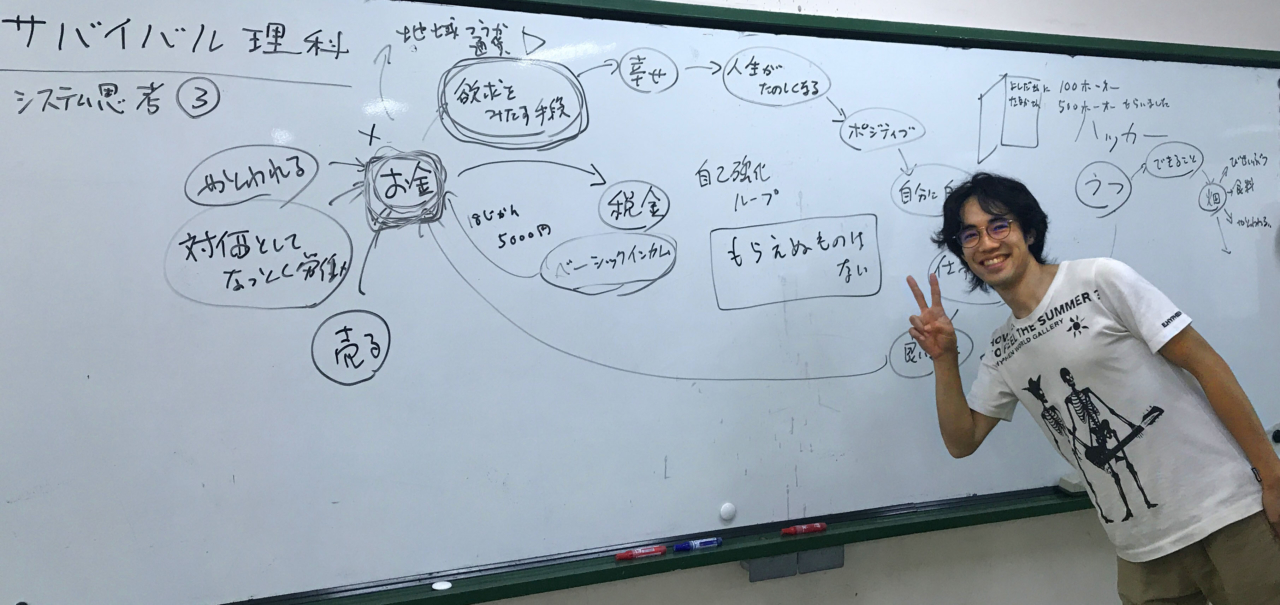 サバイバル理科
システム思考 ③
地球つうか
通貨
欲求を
みたす手段
幸せ
人生が
たのしくなる
ポジティブ
自分に
お金
やとわれる
対価として
なっとく労働
売る
1じかん
5000円
税金
ベーシックインカム
自己強化
ループ
もらえぬものは
ない
100ホーネー
500ホーオー もらいました
ハッカー
うつ
できること
畑
食料
やとわれる
THE SUMMER
WORLD GALLERY